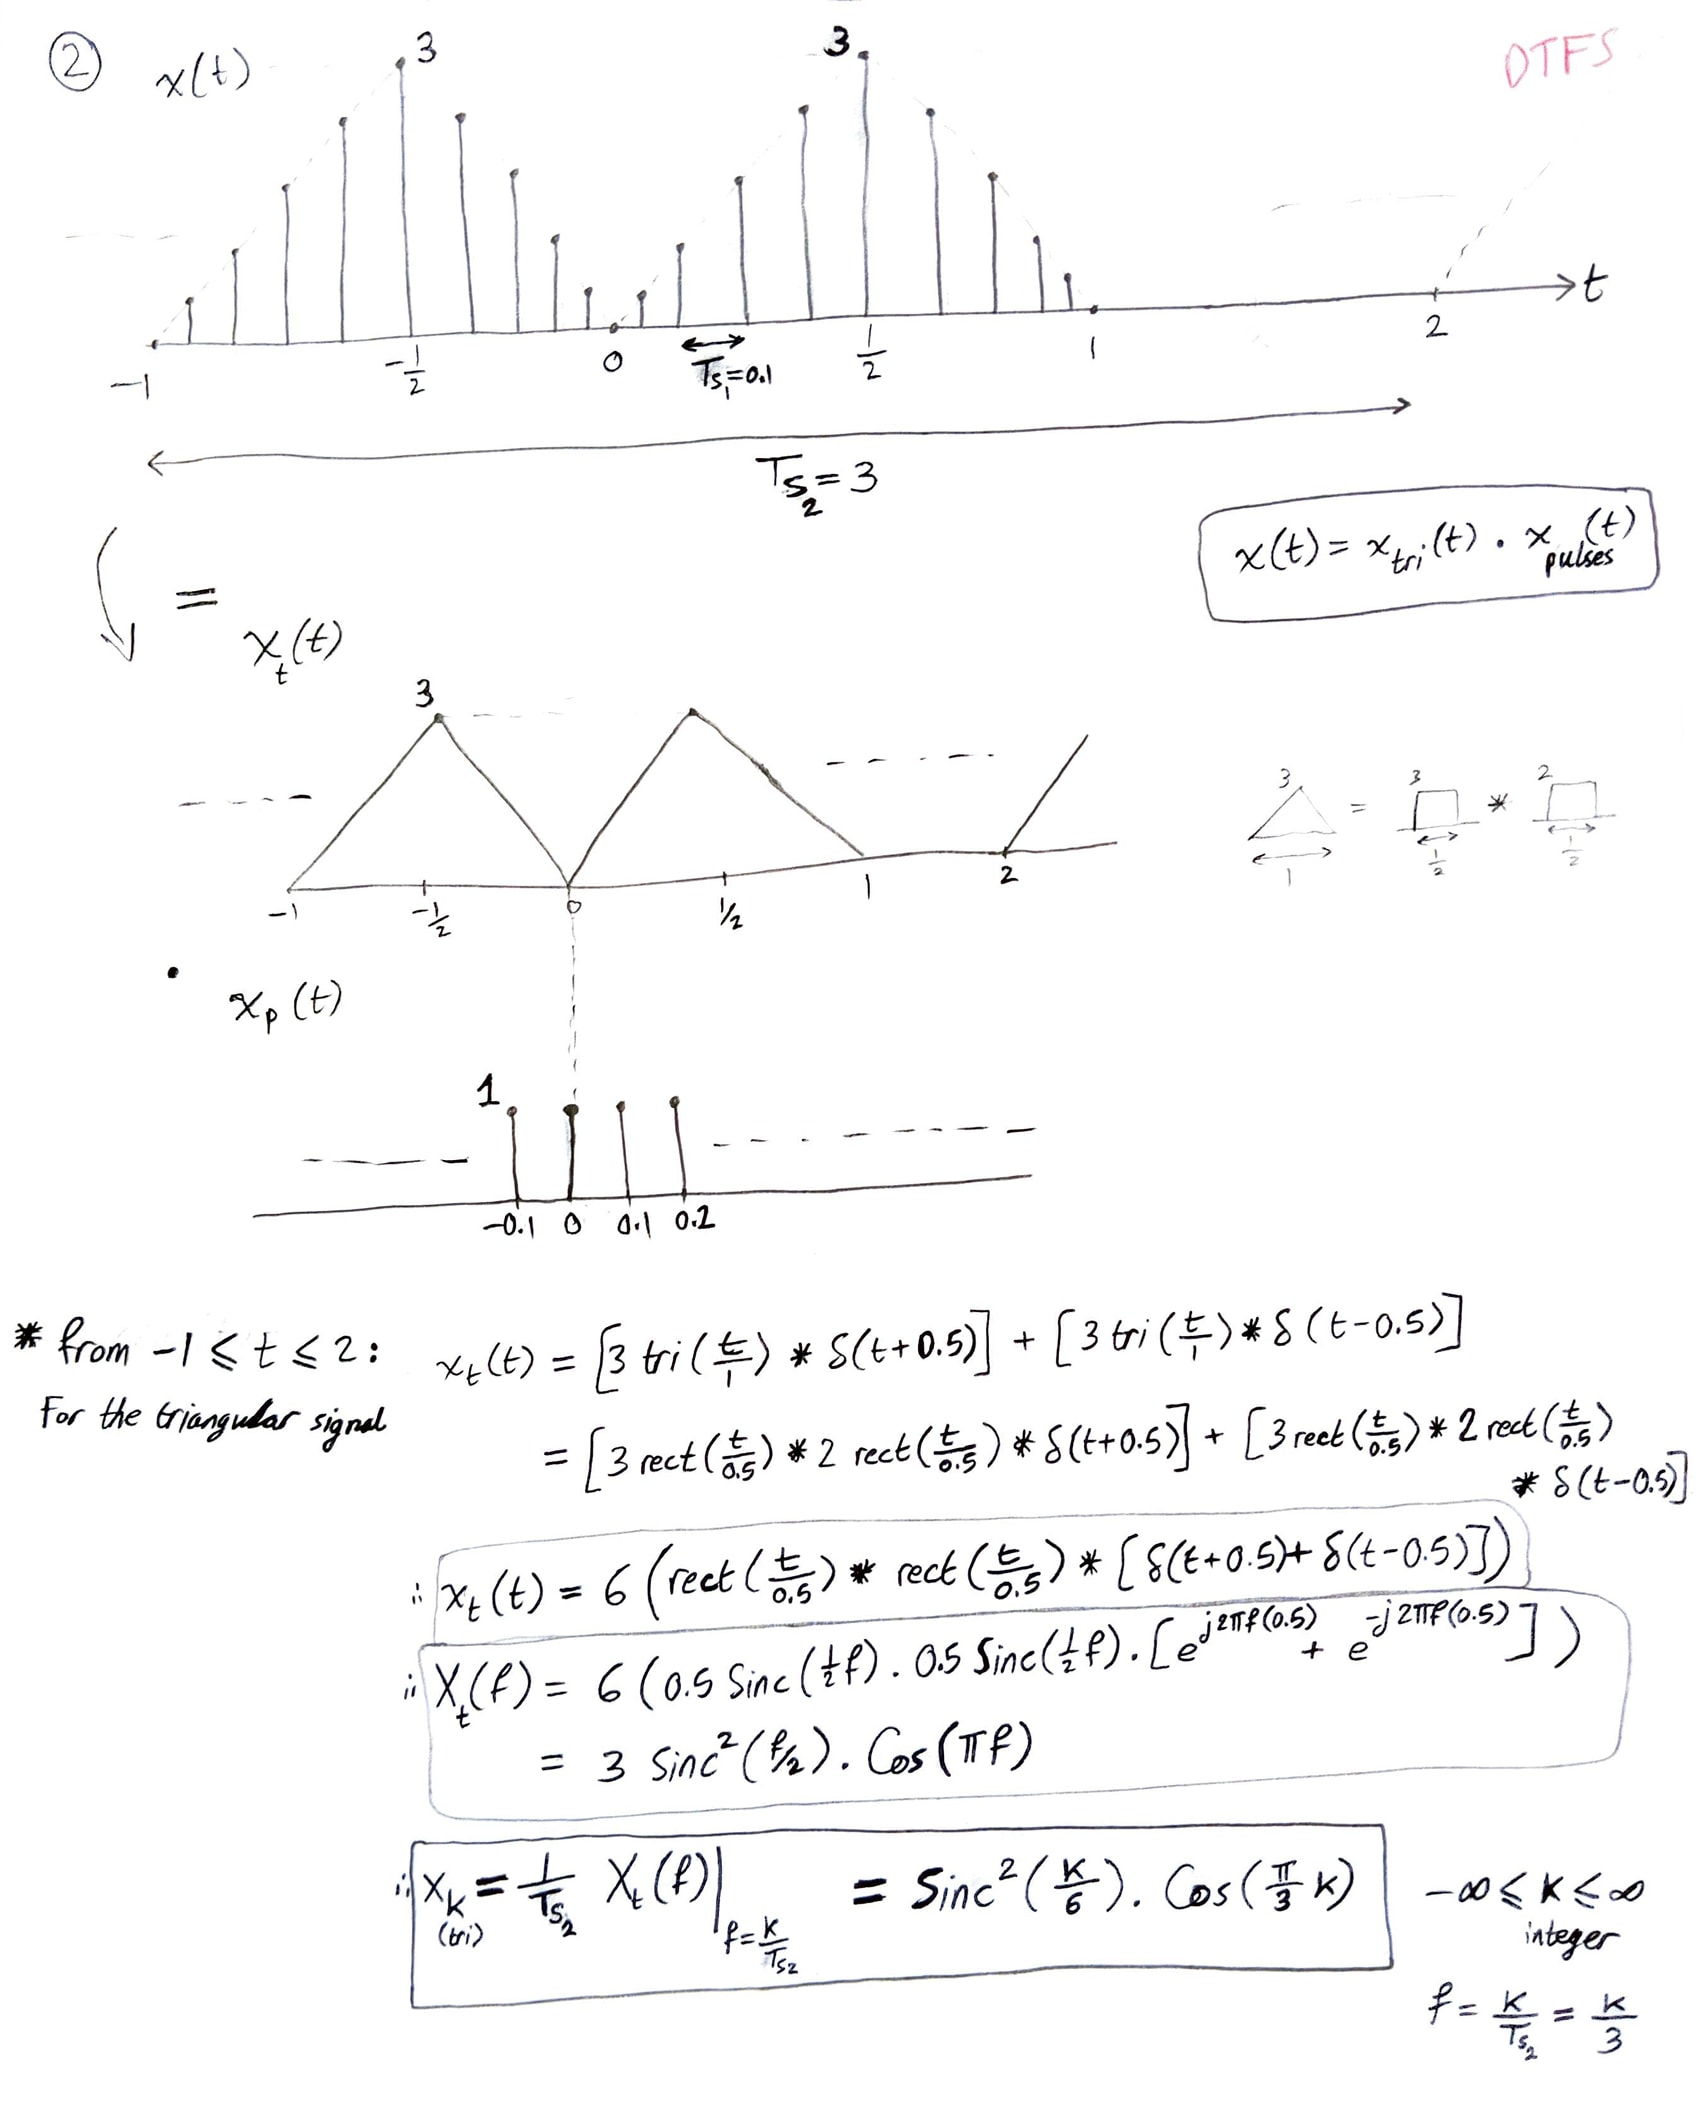 ② x(t) 3 3 DTFS
-1 -1/2 0 Ts₁=0.1 1/2 1 2 t
Ts₂=3
x(t) = x_tri(t) . x_pulses(t)
=
x_t(t)
3
3 = 3 * 2
1 1/2 1/2
-1 -1/2 0 1/2 1 2
• x_p(t)
1
-0.1 0 0.1 0.2
* from -1 ≤ t ≤ 2: x_t(t) = [3 tri(t/1) * δ(t+0.5)] + [3 tri(t/1) * δ(t-0.5)]
For the triangular signal
= [3 rect(t/0.5) * 2 rect(t/0.5) * δ(t+0.5)] + [3 rect(t/0.5) * 2 rect(t/0.5)
* δ(t-0.5)]
∴ x_t(t) = 6 (rect(t/0.5) * rect(t/0.5) * [δ(t+0.5)+ δ(t-0.5)])
∴ X_t(f) = 6 (0.5 Sinc(½f) . 0.5 Sinc(½f) . [e^{j2πf(0.5)} + e^{-j2πf(0.5)}])
= 3 Sinc²(f/2) . Cos(πf)
∴ X_k (tri) = 1/Ts₂ X_t(f)|_{f=K/Ts₂} = Sinc²(K/6) . Cos(π/3 K) -∞ ≤ K ≤ ∞
integer
f = K/Ts₂ = K/3